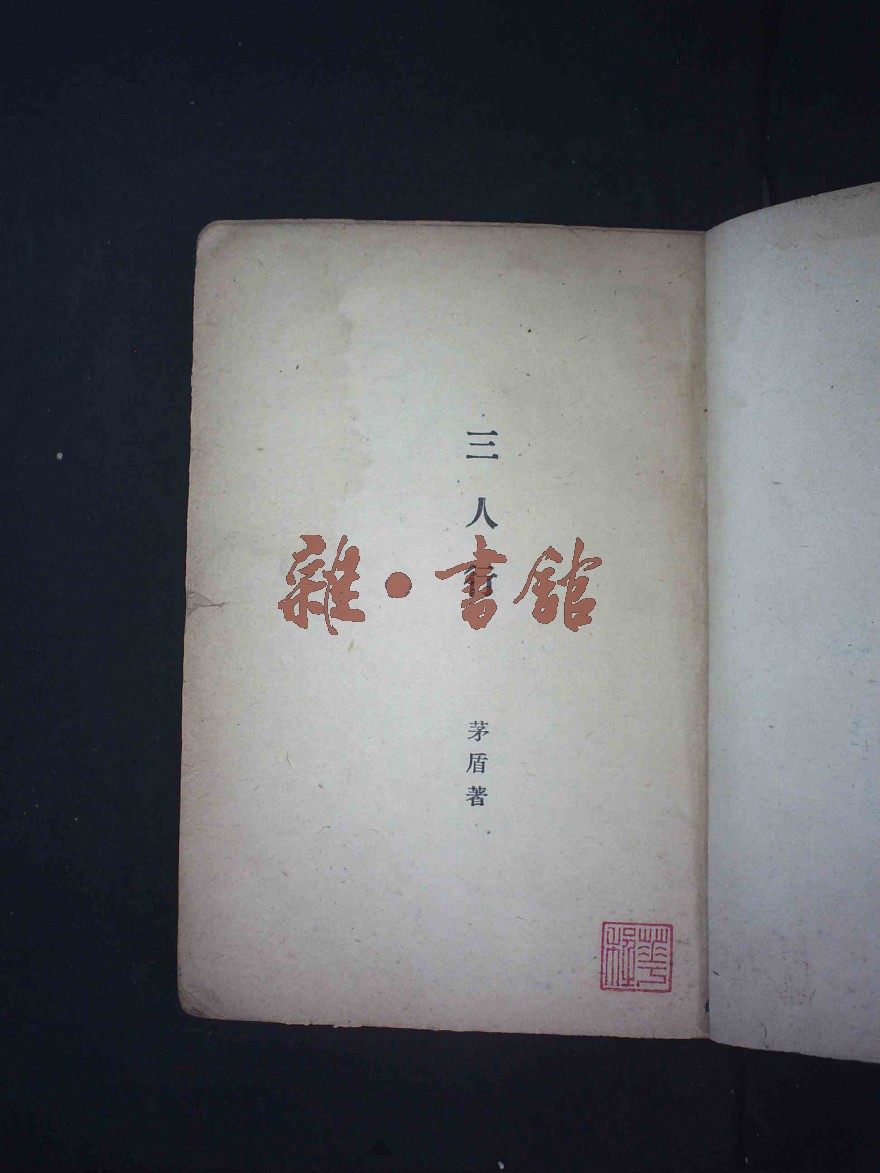 三人行
雜·書館
茅盾著